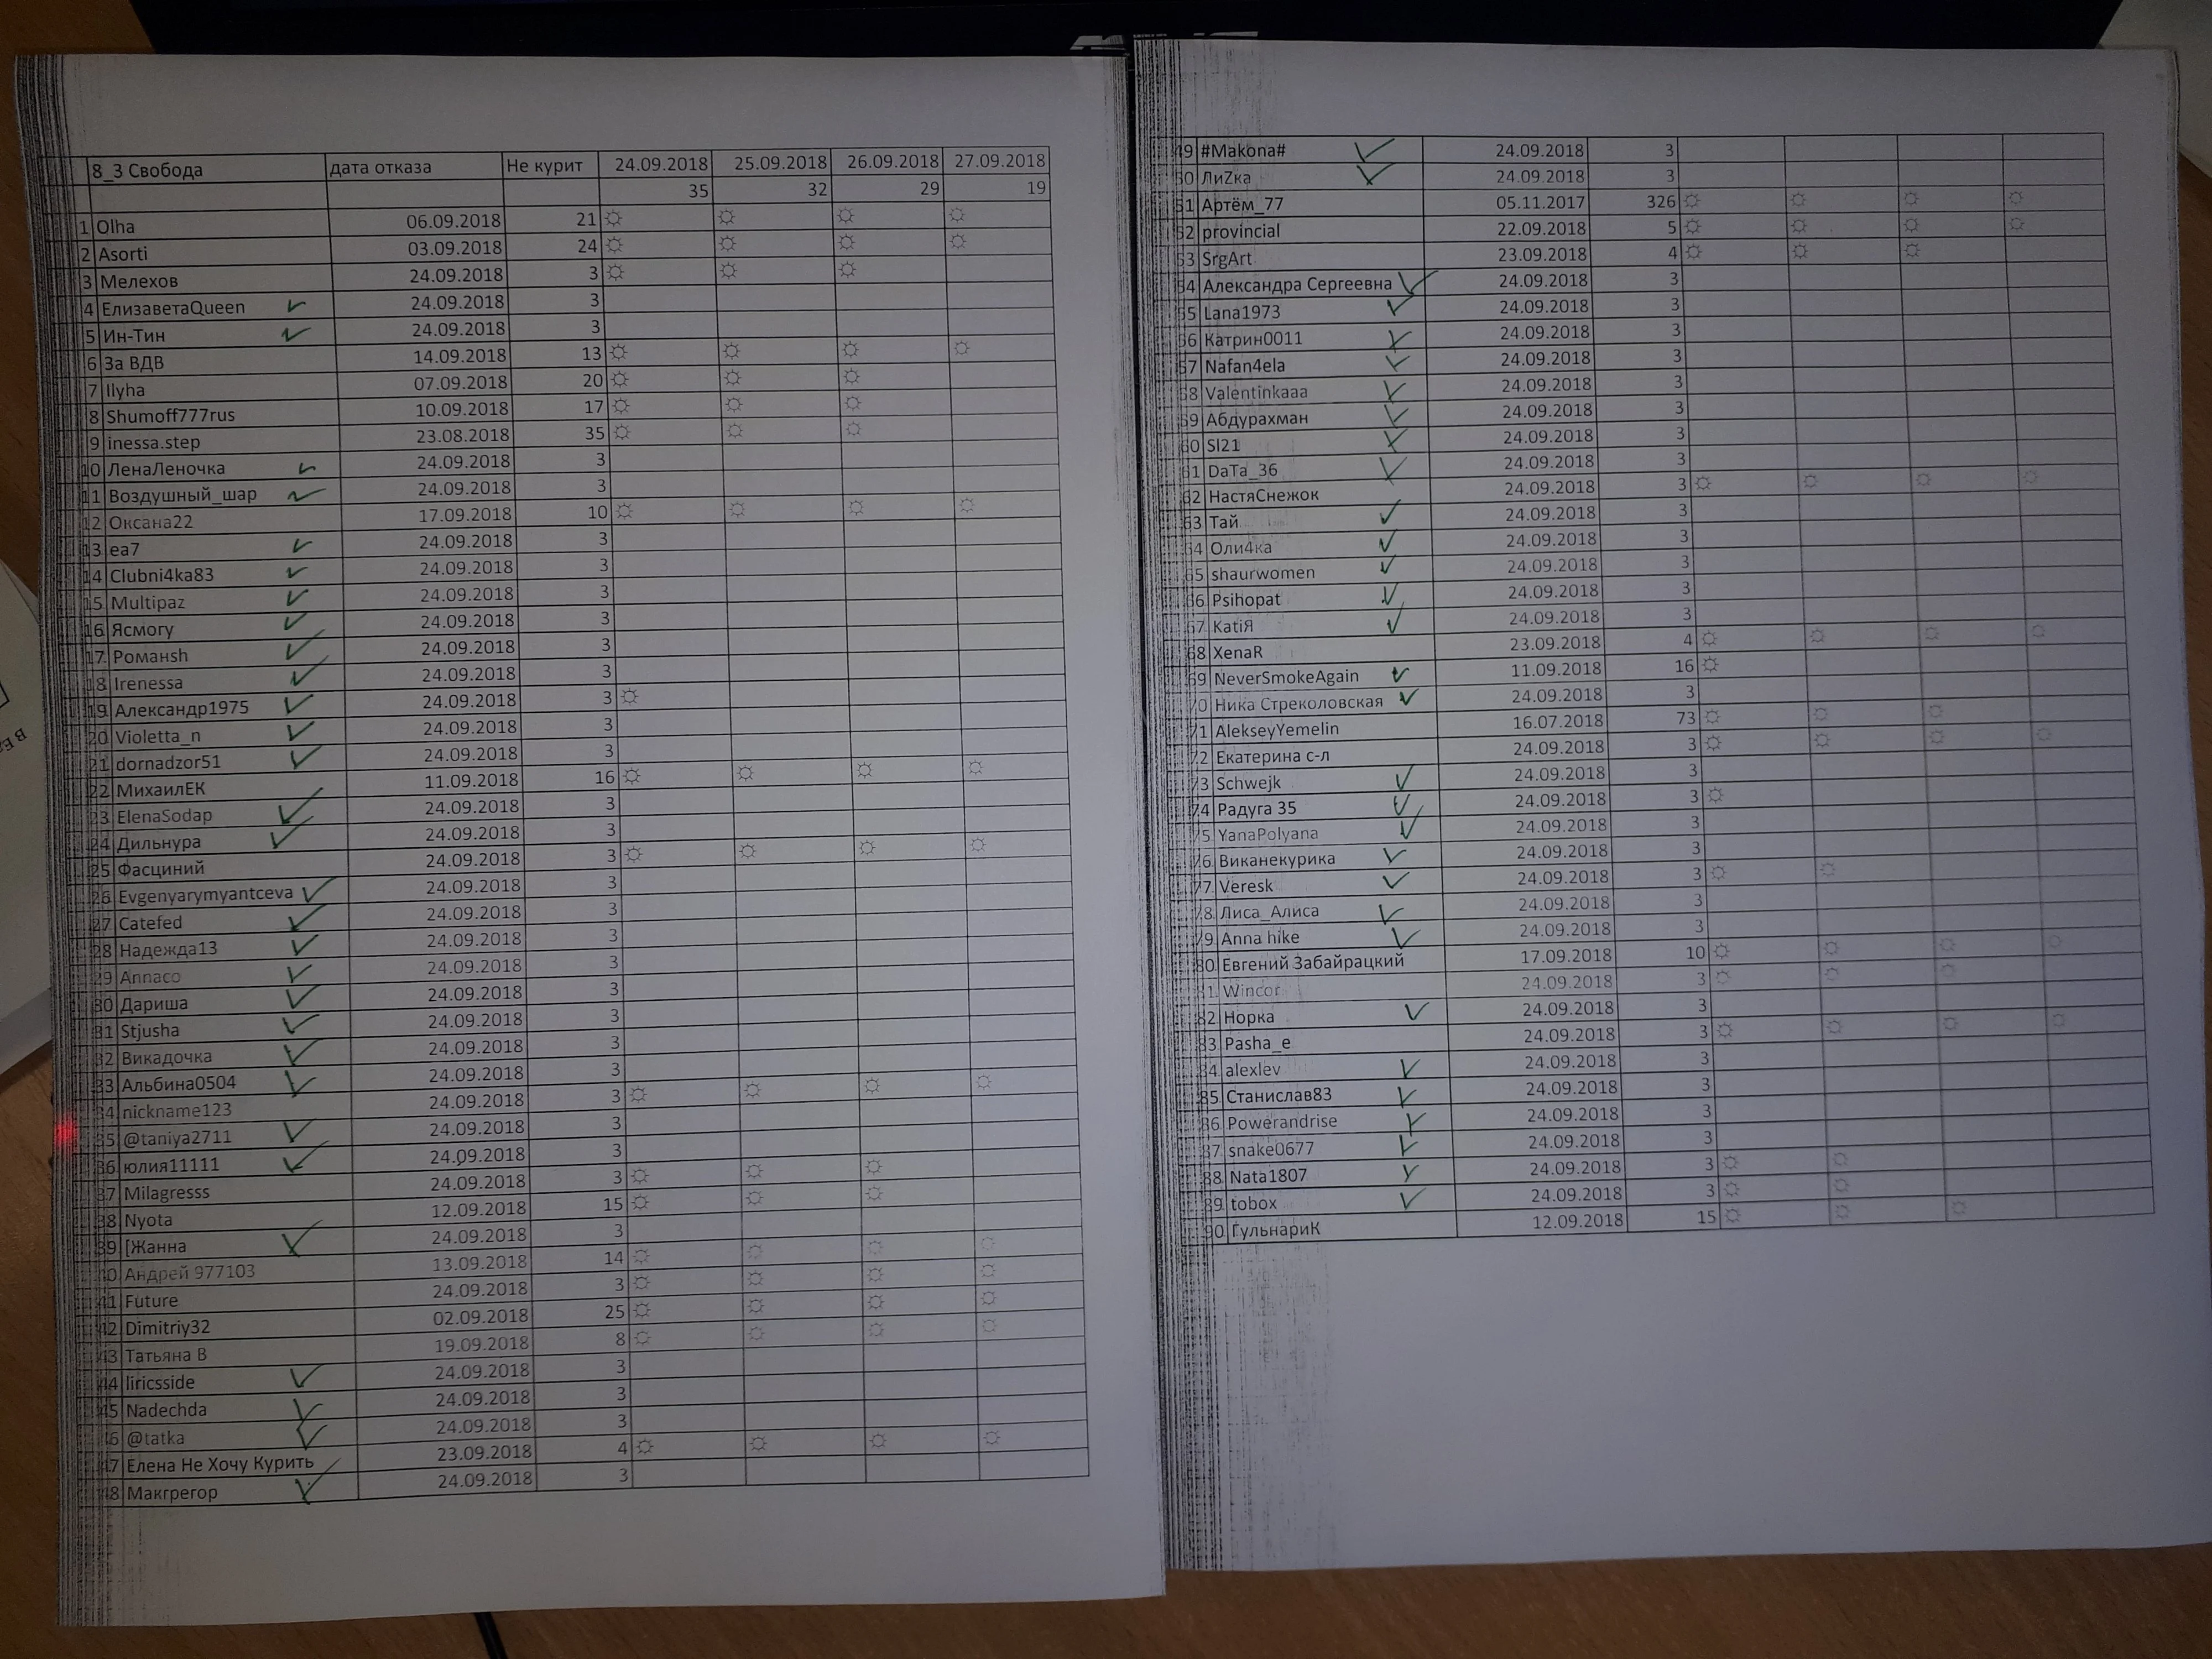 8_3 Свобода дата отказа Не курит 24.09.2018 25.09.2018 26.09.2018 27.09.2018
35 32 29 19
1 Olha 06.09.2018 21 ☼ ☼ ☼ ☼
2 Asorti 03.09.2018 24 ☼ ☼ ☼ ☼
3 Мелехов 24.09.2018 3 ☼ ☼ ☼
4 ЕлизаветаQueen ✓ 24.09.2018 3
5 Ин-Тин ✓ 24.09.2018 3
6 За ВДВ 14.09.2018 13 ☼ ☼ ☼ ☼
7 Ilyha 07.09.2018 20 ☼ ☼ ☼
8 Shumoff777rus 10.09.2018 17 ☼ ☼ ☼
9 inessa.step 23.08.2018 35 ☼ ☼ ☼
10 ЛенаЛеночка ✓ 24.09.2018 3
11 Воздушный_шар ✓ 24.09.2018 3
12 Оксана22 17.09.2018 10 ☼ ☼ ☼ ☼
13 ea7 ✓ 24.09.2018 3
14 Clubni4ka83 ✓ 24.09.2018 3
15 Multipaz ✓ 24.09.2018 3
16 Ясмогу ✓ 24.09.2018 3
17 Романsh ✓ 24.09.2018 3
18 Irenessa ✓ 24.09.2018 3
19 Александр1975 ✓ 24.09.2018 3 ☼
20 Violetta_n ✓ 24.09.2018 3
21 dornadzor51 ✓ 24.09.2018 3
22 МихаилЕК 11.09.2018 16 ☼ ☼ ☼ ☼
23 ElenaSodap ✓ 24.09.2018 3
24 Дильнура ✓ 24.09.2018 3
25 Фасциний 24.09.2018 3 ☼ ☼ ☼ ☼
26 Evgenyarymyantceva ✓ 24.09.2018 3
27 Catefed ✓ 24.09.2018 3
28 Надежда13 ✓ 24.09.2018 3
29 Annaco ✓ 24.09.2018 3
30 Дариша ✓ 24.09.2018 3
31 Stjusha ✓ 24.09.2018 3
32 Викадочка ✓ 24.09.2018 3
33 Альбина0504 ✓ 24.09.2018 3
34 nickname123 24.09.2018 3 ☼ ☼ ☼ ☼
35 @taniya2711 ✓ 24.09.2018 3
36 юлия11111 ✓ 24.09.2018 3
37 Milagresss 24.09.2018 3 ☼ ☼ ☼
38 Nyota 12.09.2018 15 ☼ ☼ ☼
39 [Жанна ✓ 24.09.2018 3
40 Андрей 977103 13.09.2018 14 ☼ ☼ ☼ ☼
41 Future 24.09.2018 3 ☼ ☼ ☼ ☼
42 Dimitriy32 02.09.2018 25 ☼ ☼ ☼ ☼
43 Татьяна В 19.09.2018 8 ☼ ☼ ☼ ☼
44 liricsside ✓ 24.09.2018 3
45 Nadechda ✓ 24.09.2018 3
46 @tatka ✓ 24.09.2018 3
47 Елена Не Хочу Курить 23.09.2018 4 ☼ ☼ ☼ ☼
48 Макгрегор ✓ 24.09.2018 3
49 #Makona# ✓ 24.09.2018 3
50 ЛиZка ✓ 24.09.2018 3
51 Артём_77 05.11.2017 326 ☼ ☼ ☼ ☼
52 provincial 22.09.2018 5 ☼ ☼ ☼ ☼
53 SrgArt 23.09.2018 4 ☼ ☼ ☼
54 Александра Сергеевна ✓ 24.09.2018 3
55 Lana1973 ✓ 24.09.2018 3
56 Катрин0011 ✓ 24.09.2018 3
57 Nafan4ela ✓ 24.09.2018 3
58 Valentinkaaa ✓ 24.09.2018 3
59 Абдурахман ✓ 24.09.2018 3
60 Sl21 ✓ 24.09.2018 3
61 DаTа_36 ✓ 24.09.2018 3
62 НастяСнежок 24.09.2018 3 ☼ ☼ ☼ ☼
63 Тай ✓ 24.09.2018 3
64 Оли4ка ✓ 24.09.2018 3
65 shaurwomen ✓ 24.09.2018 3
66 Psihopat ✓ 24.09.2018 3
67 KatiЯ ✓ 24.09.2018 3
68 XenaR 23.09.2018 4 ☼ ☼ ☼ ☼
69 NeverSmokeAgain ✓ 11.09.2018 16 ☼
70 Ника Стреколовская ✓ 24.09.2018 3
71 AlekseyYemelin 16.07.2018 73 ☼ ☼ ☼
72 Екатерина с-л 24.09.2018 3 ☼ ☼ ☼ ☼
73 Schwejk ✓ 24.09.2018 3
74 Радуга 35 ✓ 24.09.2018 3 ☼
75 YanaPolyana ✓ 24.09.2018 3
76 Виканекурика ✓ 24.09.2018 3
77 Veresk ✓ 24.09.2018 3 ☼ ☼
78 Лиса_Алиса ✓ 24.09.2018 3
79 Anna hike ✓ 24.09.2018 3
80 Евгений Забайрацкий 17.09.2018 10 ☼ ☼ ☼ ☼
81 Wincor 24.09.2018 3 ☼ ☼ ☼
82 Норка ✓ 24.09.2018 3
83 Pasha_e 24.09.2018 3 ☼ ☼ ☼ ☼
84 alexlev ✓ 24.09.2018 3
85 Станислав83 ✓ 24.09.2018 3
86 Powerandrise ✓ 24.09.2018 3
87 snake0677 ✓ 24.09.2018 3
88 Nata1807 ✓ 24.09.2018 3 ☼ ☼
89 tobox ✓ 24.09.2018 3 ☼ ☼
90 ГульнариК 12.09.2018 15 ☼ ☼ ☼